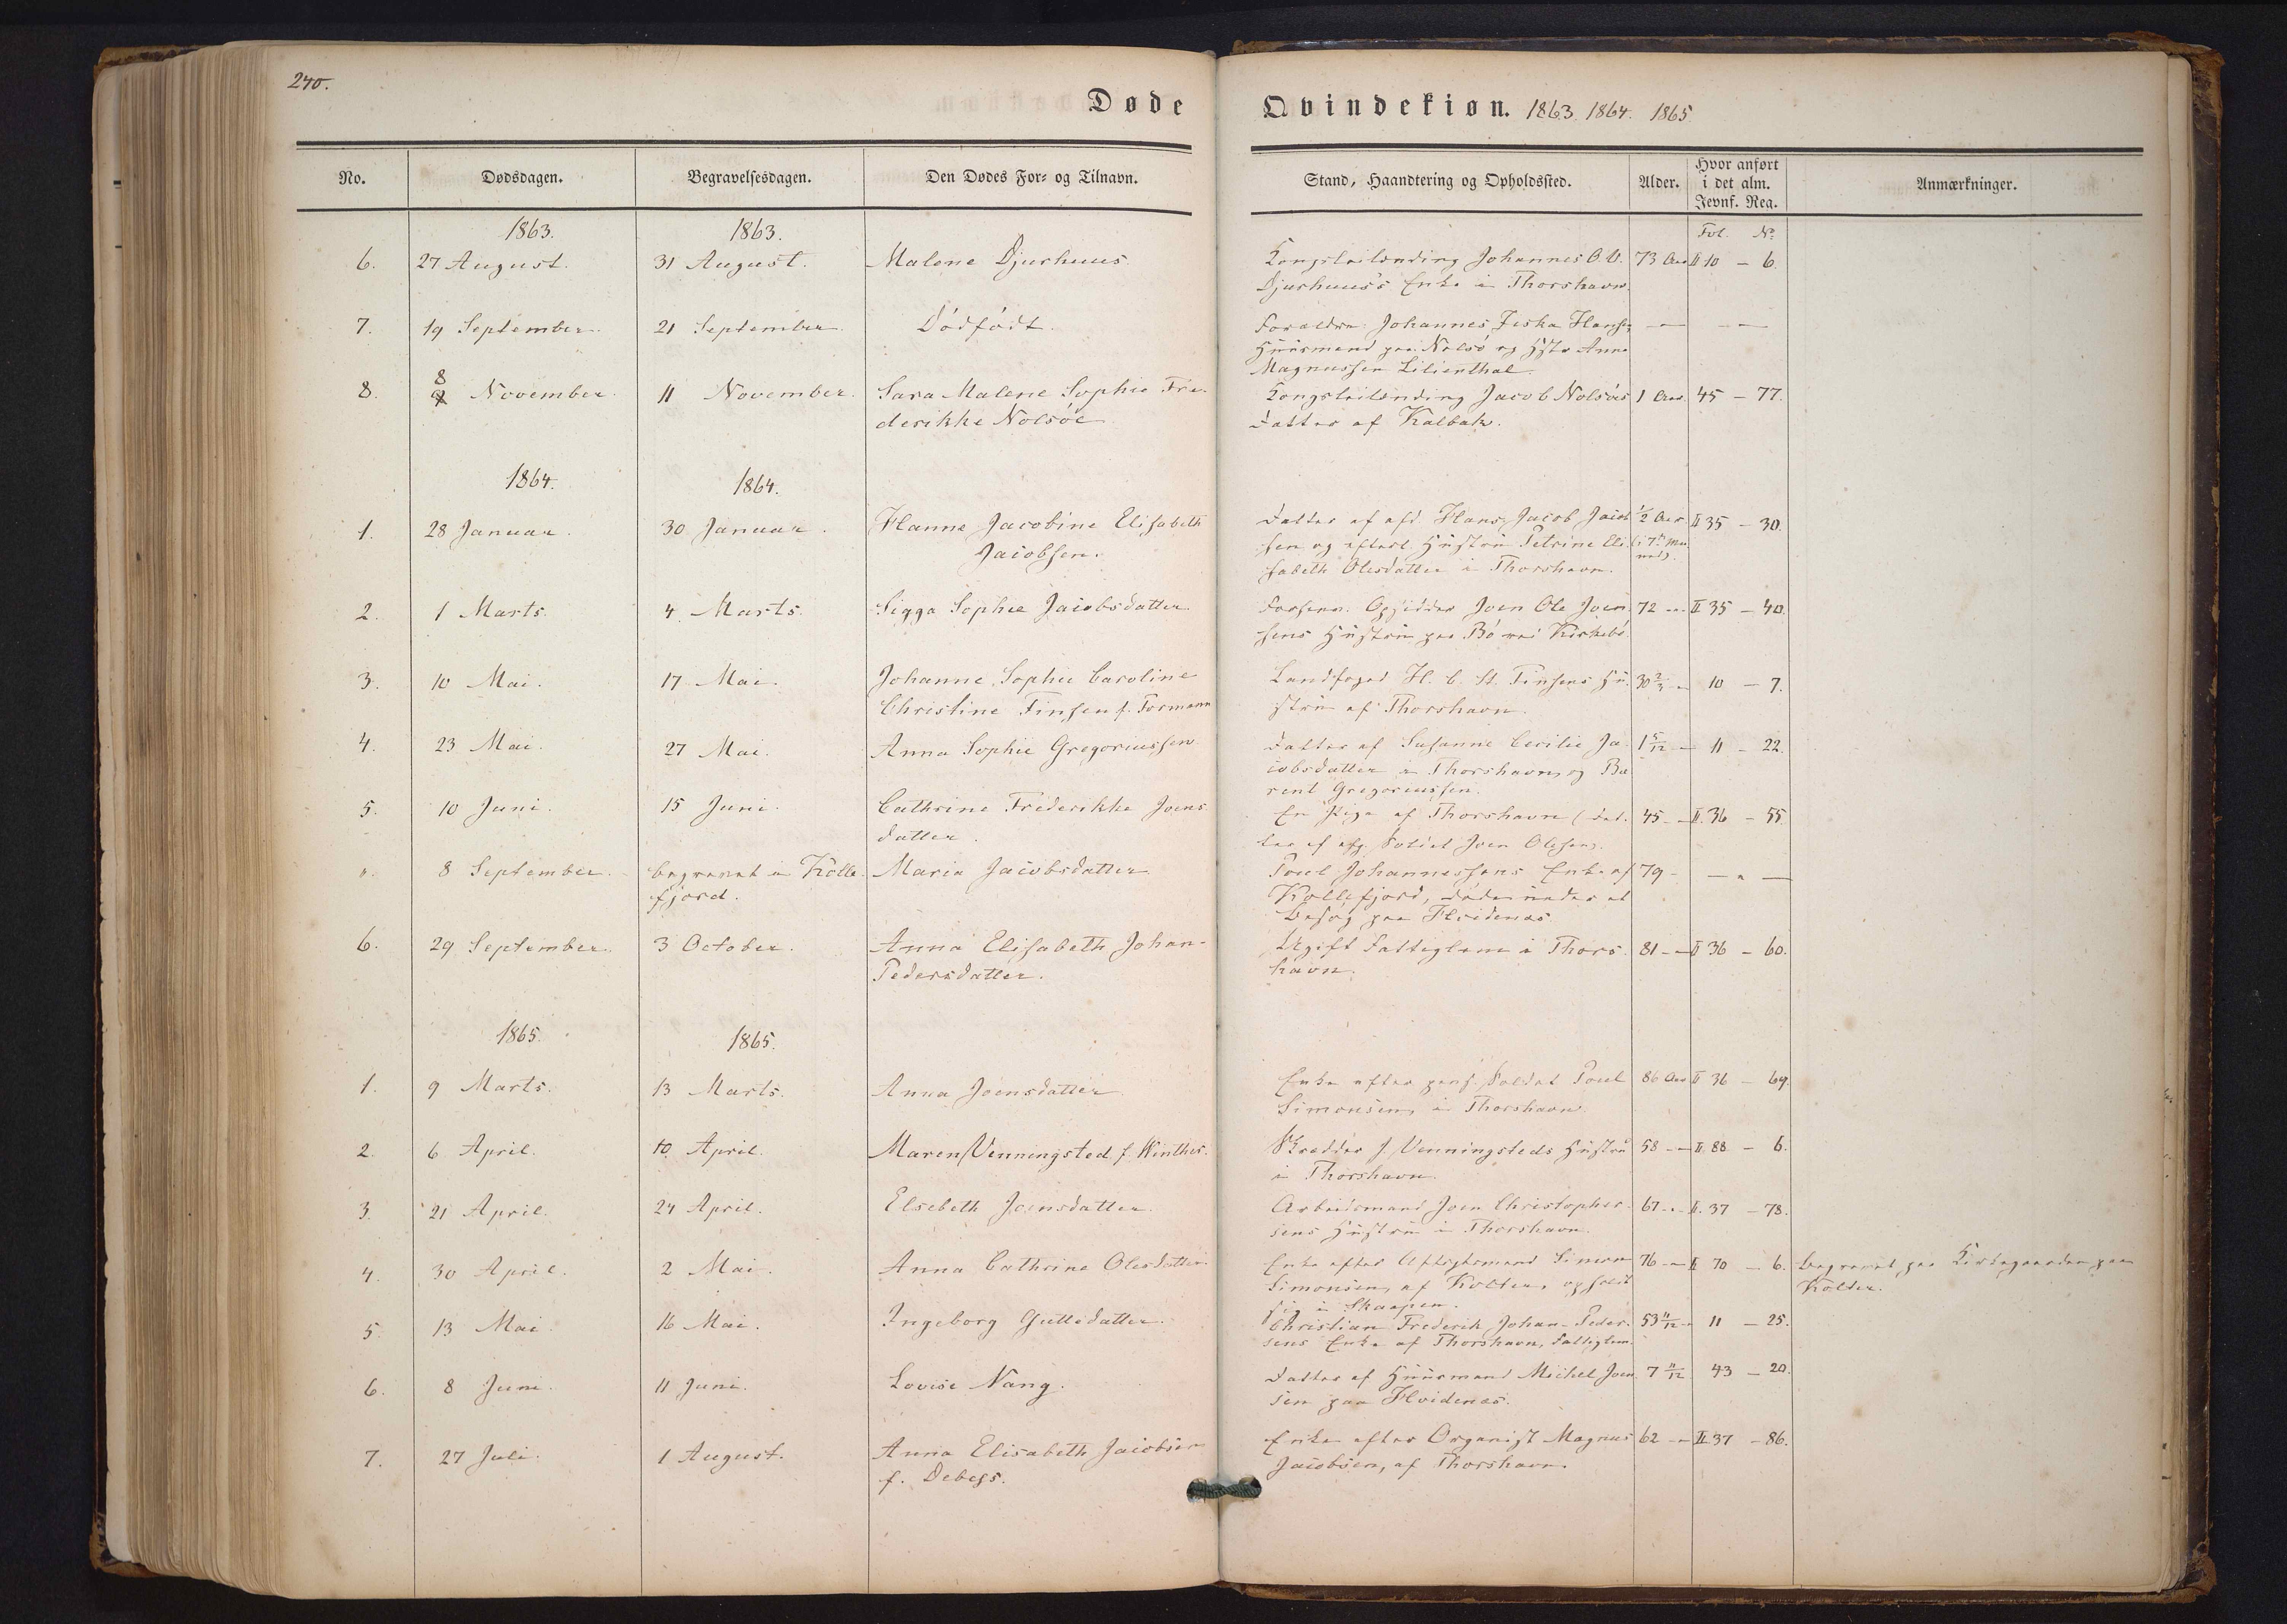 240.
Døde
Qvindekiøn. 1863. 1864. 1865
No.
Dødsdagen.
Begravelsesdagen.
Den Dødes For- og Tilnavn.
Stand, Haandtering og Opholdssted.
Alder.
Hvor anført
i det alm.
Jevnf. Reg.
Anmærkninger.
1863. 1863. Fol. No
6. 27 August. 31 August. Malene Djurhuus Kongsleilænding Johannes O. V. 73 Aar II 10 - 6.
Djurhuus's Enke i Thorshavn.
7. 19 September. 21 September. Dödfödt. Forældre: Johannes Zeska Hansen
Huusmand paa Nolsö og Hstr Anna
Magnussen Lilienthal
8. 8 November. 11 November. Sara Malene Sophie Fre- Kongsleilænding Jacob Nolsöes 1 Aar. 45 - 77.
derikke Nolsöe Datter af Kalbak.
1864. 1864.
1. 28 Januar. 30 Januar. Hanne Jacobine Elisabeth Datter af afd. Hans Jacob Jacob 1/2 Aar II 35 - 30.
Jacobsen. sen og efterl. Hustru Petrine Eli- (i 7de Maa
sabeth Olesdatter i Thorshavn. ned).
2. 1 Marts. 4. Marts. Sigga Sophie Jacobsdatter Opsidder Joen Ole Joen 72 - II 35 - 40.
sens Hustru paa Bö ved Kirkebö.
3. 10 Mai. 17 Mai. Johanne Sophie Caroline Landfoged H. C. St. Finsens Hu- 30 2/3 - 10 - 7.
Christine Finsen f. Formann stru af Thorshavn.
4. 23 Mai. 27 Mai. Anna Sophie Gregoriussen Datter af Susanne Cecilie Ja- 1 5/12 - 11 - 22.
cobsdatter i Thorshavn og Ba
rent Gregoriussen.
5. 10 Juni. 15 Juni. Cathrine Frederikke Joens En Pige af Thorshavn (Dat- 45 - II. 36 - 55.
datter. ter af afg. Soldat Joen Olesen).
". 8 September. begravet i Kolle- Maria Jacobsdatter Poul Johannessens Enke af 79 - - " -
fjord. Kollefjord, døde under et
Besøg paa Hvidenæs.
6. 29 September. 3 October. Anna Elisabeth Johan- Ugift Fattiglem i Thors- 81 - II 36 - 60.
Pedersdatter. havn.
1865. 1865.
1. 9 Marts. 13 Marts. Anna Joensdatter Enke efter pens. Soldat Poul 86 Aar II 36 - 69.
Simonsen, i Thorshavn.
2. 6 April. 10. April. Maren Venningsted f. Winther. Skrædder J. Venningsteds Hustru 58 - II. 88 - 6.
i Thorshavn.
3. 21 April. 24 April. Elsebeth Joensdatter Arbeidsmand Joen Christopher- 67 - II. 37 - 78.
sens Hustru i Thorshavn.
4. 30 April. 2 Mai. Anna Cathrine Olesdatter. Enke efter Aftægtsmand Simon 76 - II 70 - 6. begravet paa Kirkegaarden paa
Simonsen, af Kolter, opholdt Kolter.
sig i Skaapen.
5. 13 Mai. 16 Mai. Ingeborg Guttedatter. Christian Frederik Johan-Peder- 53 11/12 - 11 - 25.
sens Enke af Thorshavn, Fattiglem.
6. 8 Juni. 11 Juni. Lovise Nang. Datter af Huusmand Michel Joen 7 11/12 43 - 20.
sen paa Hvidenæs.
7. 27 Juli. 1 August. Anna Elisabeth Jacobsen Enke efter Organist Magnus 62 - II 37 - 86.
f. Debess. Jacobsen, af Thorshavn.